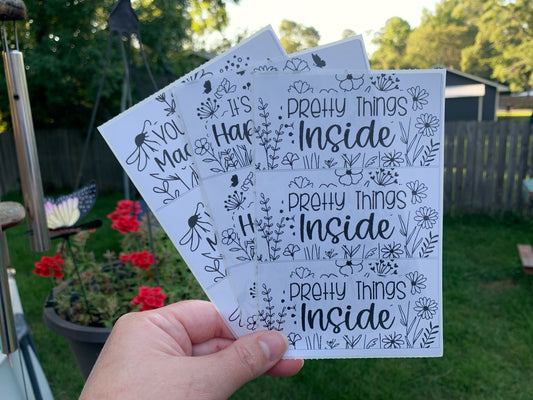 YOU
MA
IT'S
HA
PRETTY THINGS
Inside
PRETTY THINGS
Inside
PRETTY THINGS
Inside